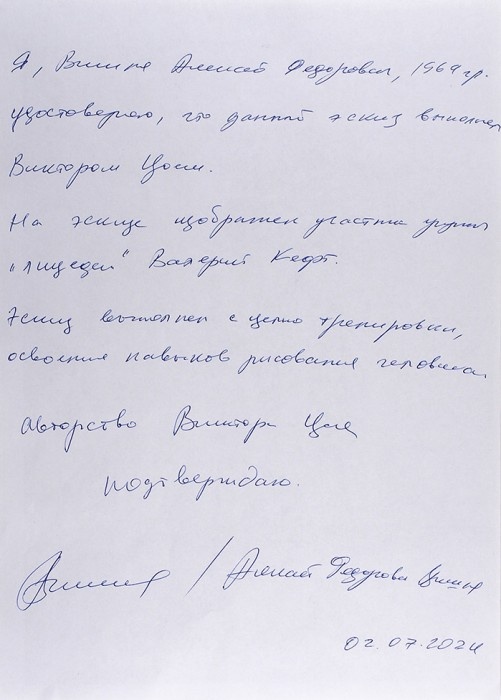 Я, Вишня Алексей Федорович, 1964 г.р.
удостоверяю, что данный эскиз выполнен
Виктором Цоем.
На эскизе изображен участник группы
"Лицедеи" Валерий Кефт.
Эскиз выполнен с целью тренировки,
освоения навыков рисования человека.
Авторство Виктора Цоя
подтверждаю.
/ Алексей Федорович Вишня
02.07.2024